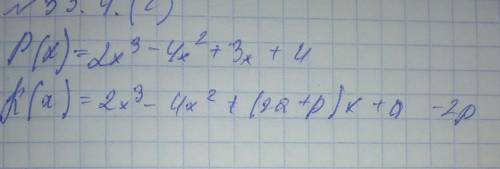 № 33.4.(2)
P(x)=2x³-4x²+3x+4
K(x)=2x³-4x²+(2a+p)x+a-2p